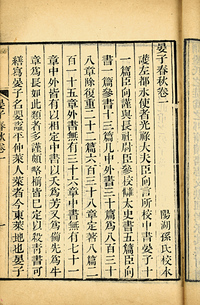 晏子春秋卷一
陽湖孫氏校本
護左都水使者光祿大夫臣向言所校中書晏子十
一篇臣向謹與長社尉臣參校讎太史書五篇臣向
書一篇參書十三篇凡中外書三十篇為八百三十
八章除復重二十二篇六百三十八章定著八篇二
百一十五章外書無有三十六章中書無有七十一
章中外皆有以相定中書以夭為芳又為備先為牛
章為長如此類者多謹頗略椾皆已定以殺青書可
繕寫晏子名嬰諡平仲萊人萊者今東萊地也晏子
晏子春秋卷一